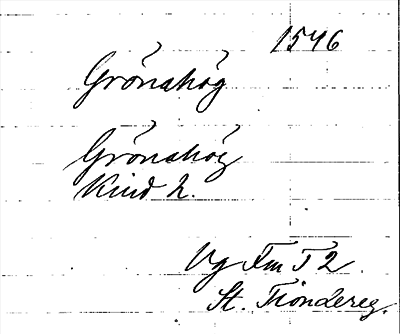 1546
Grönahög
Grönahög
Kind h.
Vg Fm T 2
St. Tiondereg.